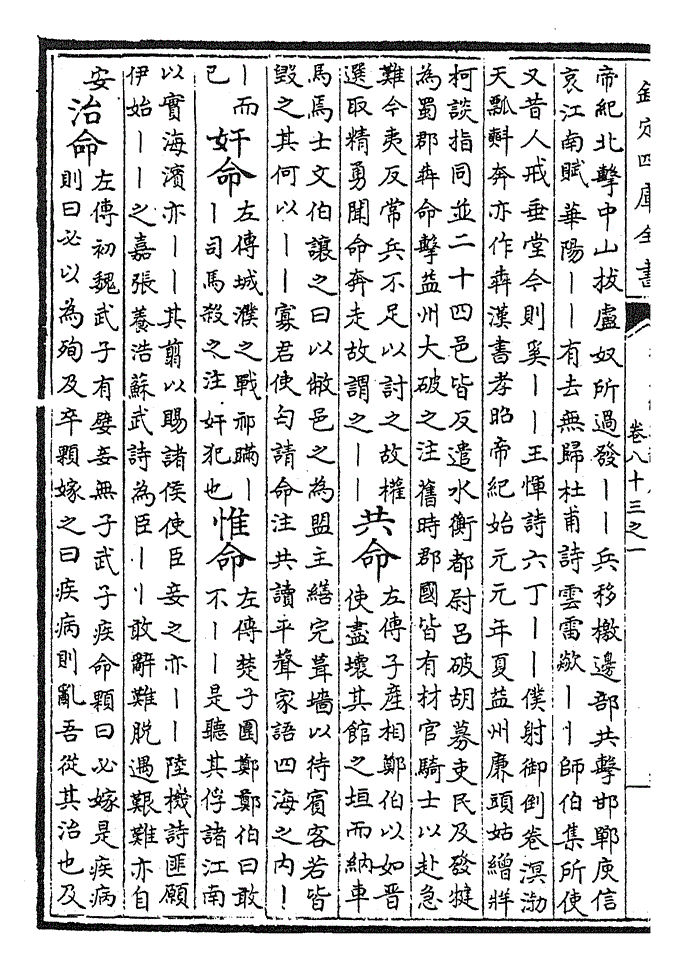 欽定四庫全書
卷八十三之一
帝紀北擊中山拔盧奴所過發丨丨兵移檄邊部共擊邯鄲庾信
哀江南賦華陽丨丨有去無歸杜甫詩雲雷歘丨丨師伯集所使
又昔人戒垂堂今則奚丨丨王惲詩六丁丨丨僕射御倒卷溟渤
天瓢㪺奔亦作犇漢書孝昭帝紀始元元年夏益州廉頭姑繒牂
柯談指同並二十四邑皆反遣水衡都尉呂破胡募吏民及發犍
為蜀郡犇命擊益州大破之注舊時郡國皆有材官騎士以赴急
難今夷反常兵不足以討之故權
選取精勇聞命奔走故謂之丨丨
共命
左傳子產相鄭伯以如晉
使盡壞其館之垣而納車
馬馬士文伯讓之曰以敝邑之為盟主繕完葺墻以待賓客若皆
毀之其何以丨丨寡君使匄請命注共讀平聲家語四海之内丨
丨而
已
奸命
左傳城濮之戰祁瞞丨
丨司馬殺之注奸犯也
惟命
左傳楚子圍鄭鄭伯曰敢
不丨丨是聽其俘諸江南
以實海濱亦丨丨其翦以賜諸侯使臣妾之亦丨丨陸機詩匪願
伊始丨丨之嘉張養浩蘇武詩為臣丨丨敢辭難脫遇艱難亦自
安
治命
左傳初魏武子有嬖妾無子武子疾命顆曰必嫁是疾病
則曰必以為殉及卒顆嫁之曰疾病則亂吾從其治也及